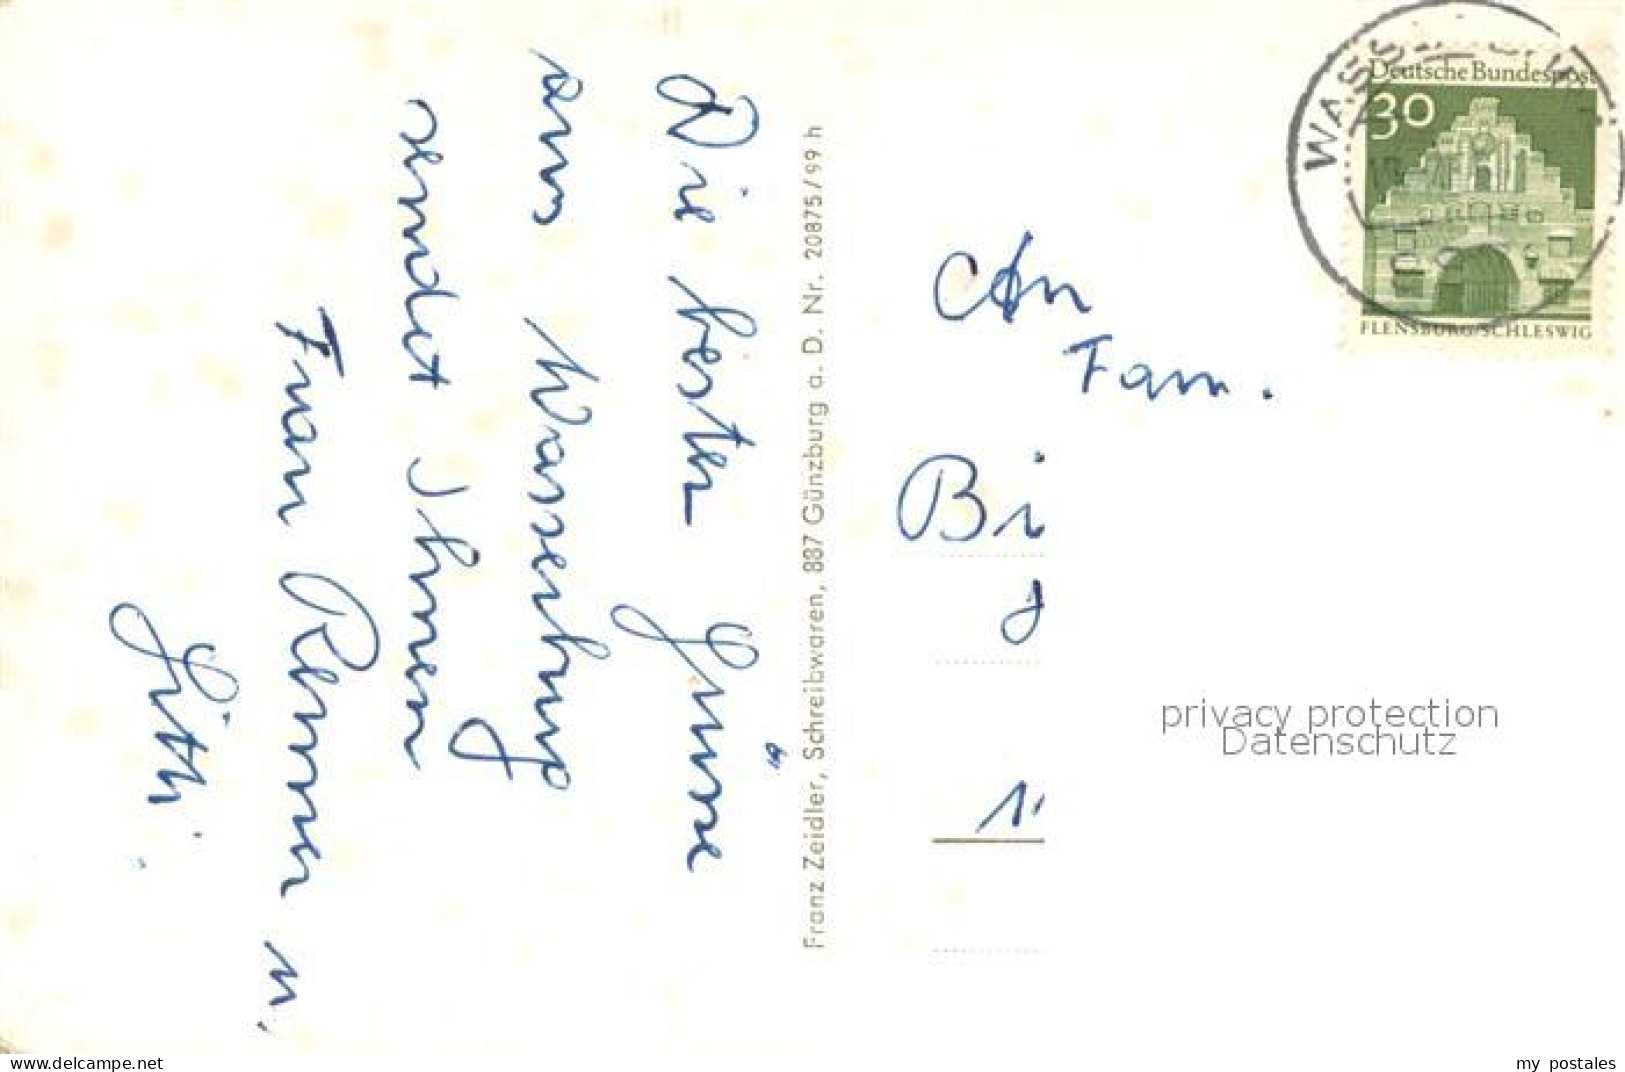 Die besten Grüsse
aus Wasserburg
sendet Ihnen
Frau Renner u.
Gitti.
Franz Zeidler, Schreibwaren, 887 Günzburg a. D. Nr. 20875/99 h
Deutsche Bundespost
30
FLENSBURG/SCHLESWIG
An
Fam.
Bi
privacy protection
Datenschutz
www.delcampe.net
my_postales